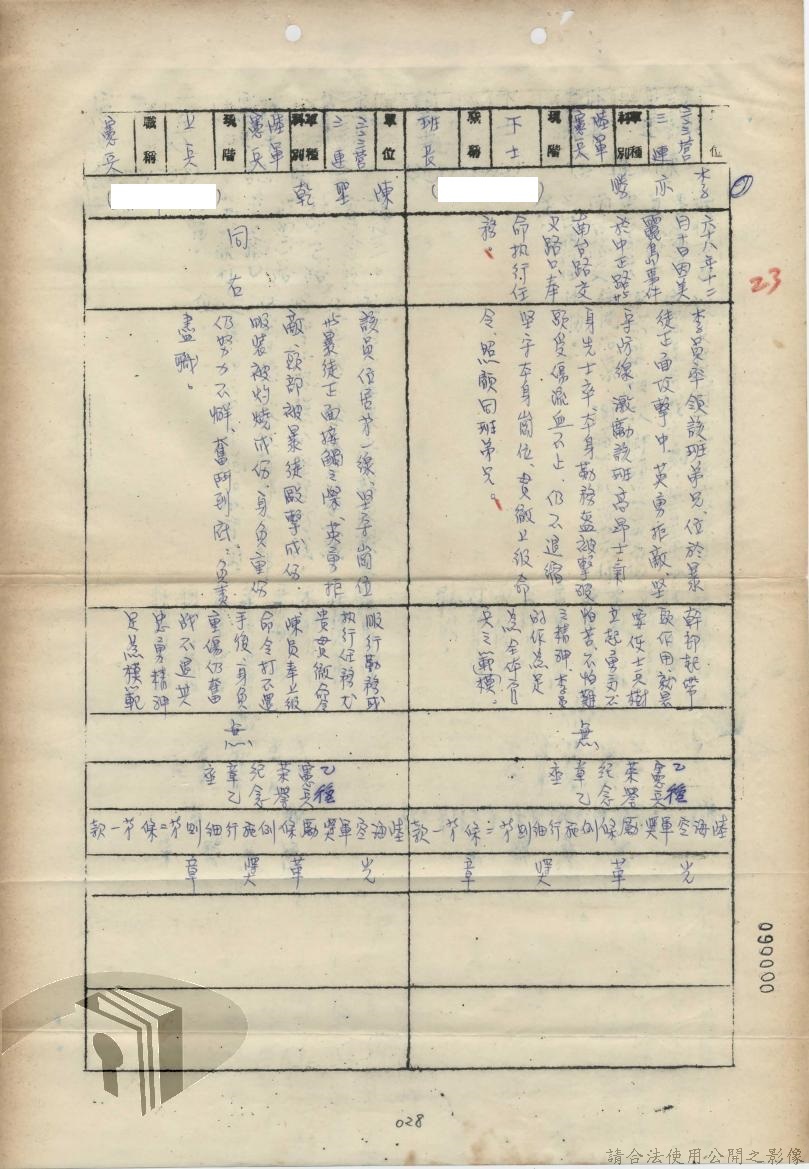 位
二三三營
三連
軍種
科別
陸軍
憲兵
現階
下士
職稱
班長
李亦勝
六十八年十二
月十日因美
麗島事件
於中正路
南台路交
叉路口奉
命執行任
務。
李員率領該班弟兄、位於暴
徒正面攻擊中、英勇拒敵、堅
守防線、激勵該班高昂士氣
身先士卒、本身勤務盔被擊破
頭受傷流血不止、仍不退縮
堅守本身崗位、貫徹上級命
令、照顧同班弟兄。
幹部起帶
頭作用、就是
要使士兵樹
立起勇氣不
怕苦、不怕難
之精神、李員
的作為足
為全體官
兵之範模。
無
乙種
憲兵
榮譽
紀念
章乙
座
陸海空軍獎勵條例施行細則第二條第一款
光華獎章
單位
二三三營
三連
軍種
科別
陸軍
憲兵
現階
上兵
職稱
憲兵
陳堅乾
同右
該員位居第一線、堅守崗位
與暴徒正面接觸之際、英勇拒
敵、頭部被暴徒毆擊成傷、
服裝被灼燒成傷、身負重傷
仍努力不懈、奮鬥到底、負責
盡職。
服行勤務或
執行任務尤
貴貫徹命令
陳員奉上級
命令打不還
手後、身負
重傷仍奮
戰不退其
忠勇精神
足為模範
無
乙種
憲兵
榮譽
紀念
章乙
座
陸海空軍獎勵條例施行細則第二條第一款
光華獎章
23
000090
028
請合法使用公開之影像